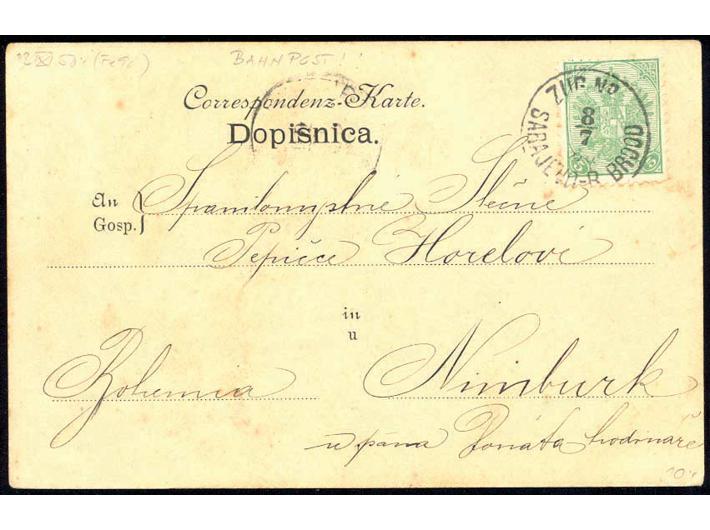 BAHNPOST!
Correspondenz-Karte.
Dopisnica.
ZUG No
8
7
SARAJEVO-R BROOD
5 5
An
Gosp.
Spanilomyslné Slečně
Pepičce Horelové
in
u
Bohemia Nimburk
u pána Donáta hodináře